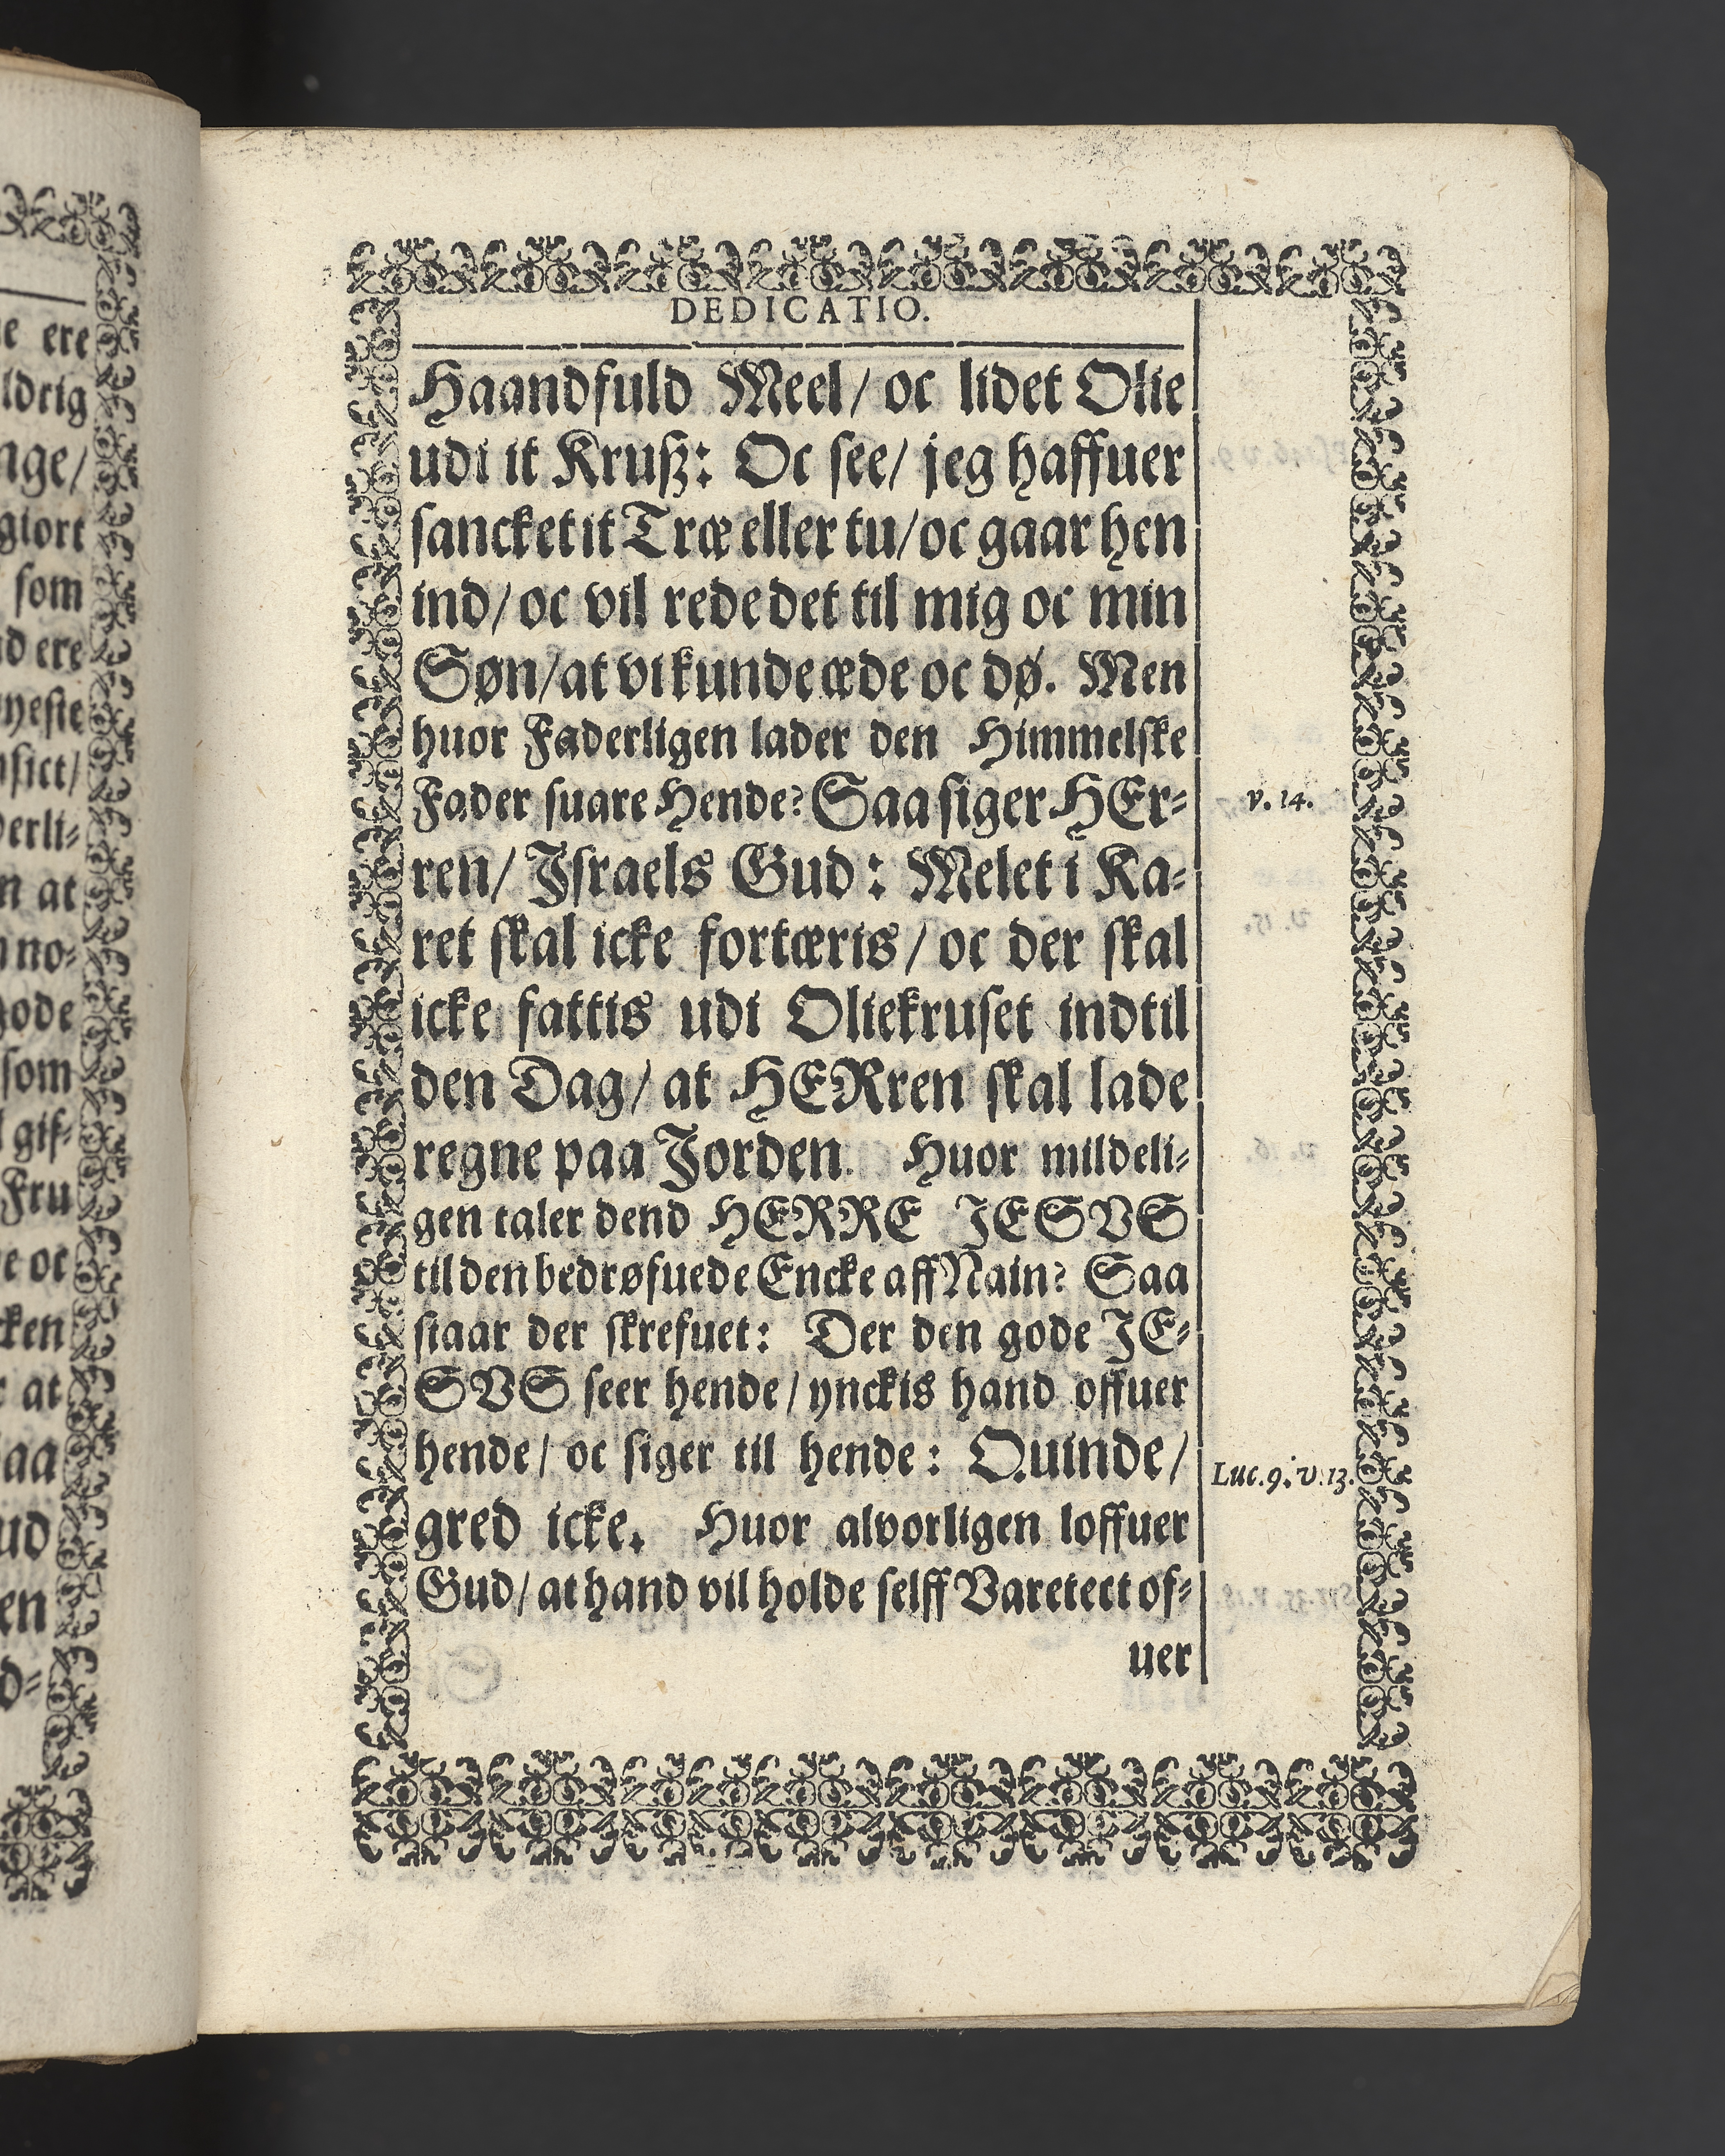 e ere
ldrig
nge/
giort
som
d ere
yeste
sict/
derli-
n at
no-
gode
som
gif-
Fru
e oc
ken
at
aa
ud
en
d-
DEDICATIO.
Haandfuld Meel/ oc lidet Olie
udi it Kruß: Oc see/ jeg haffuer
sancket it Træ eller tu/ oc gaar hen
ind/ oc vil rede det til mig oc min
Søn/ at vi kunde æde oc dø. Men
huor Faderligen lader den Himmelske
Fader suare Hende? Saa siger HEr-
v. 14.
ren/ Israels Gud: Melet i Ka-
ret skal icke fortæris/ oc der skal
icke fattis udi Oliekruset indtil
den Dag/ at HERren skal lade
regne paa Jorden. Huor mildeli-
gen taler dend HERRE JESVS
til den bedrøfuede Encke aff Nain? Saa
staar der skrefuet: Der den gode JE-
SVS seer hende/ ynckis hand offuer
hende/ oc siger til hende: Quinde/
Luc. 9. v. 13.
gred icke. Huor alvorligen loffuer
Gud/ at hand vil holde selff Varetect of-
uer